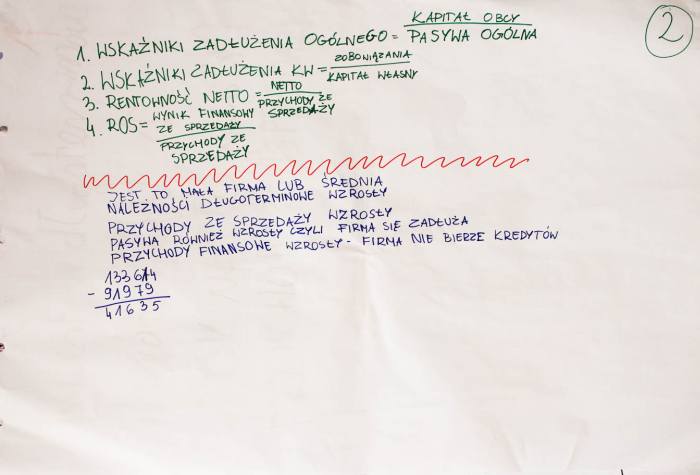 2
1. WSKAŹNIKI ZADŁUŻENIA OGÓLNEGO = KAPITAŁ OBCY / PASYWA OGÓLNA
2. WSKAŹNIKI ZADŁUŻENIA KW = ZOBOWIĄZANIA / KAPITAŁ WŁASNY
3. RENTOWNOŚĆ NETTO = NETTO / PRZYCHODY ZE SPRZEDAŻY
4. ROS = WYNIK FINANSOWY ZE SPRZEDAŻY / PRZYCHODY ZE SPRZEDAŻY
JEST TO MAŁA FIRMA LUB ŚREDNIA
NALEŻNOŚCI DŁUGOTERMINOWE WZROSŁY
PRZYCHODY ZE SPRZEDAŻY WZROSŁY
PASYWA RÓWNIEŻ WZROSŁY CZYLI FIRMA SIĘ ZADŁUŻA
PRZYCHODY FINANSOWE WZROSŁY - FIRMA NIE BIERZE KREDYTÓW
133614
- 91979
41635